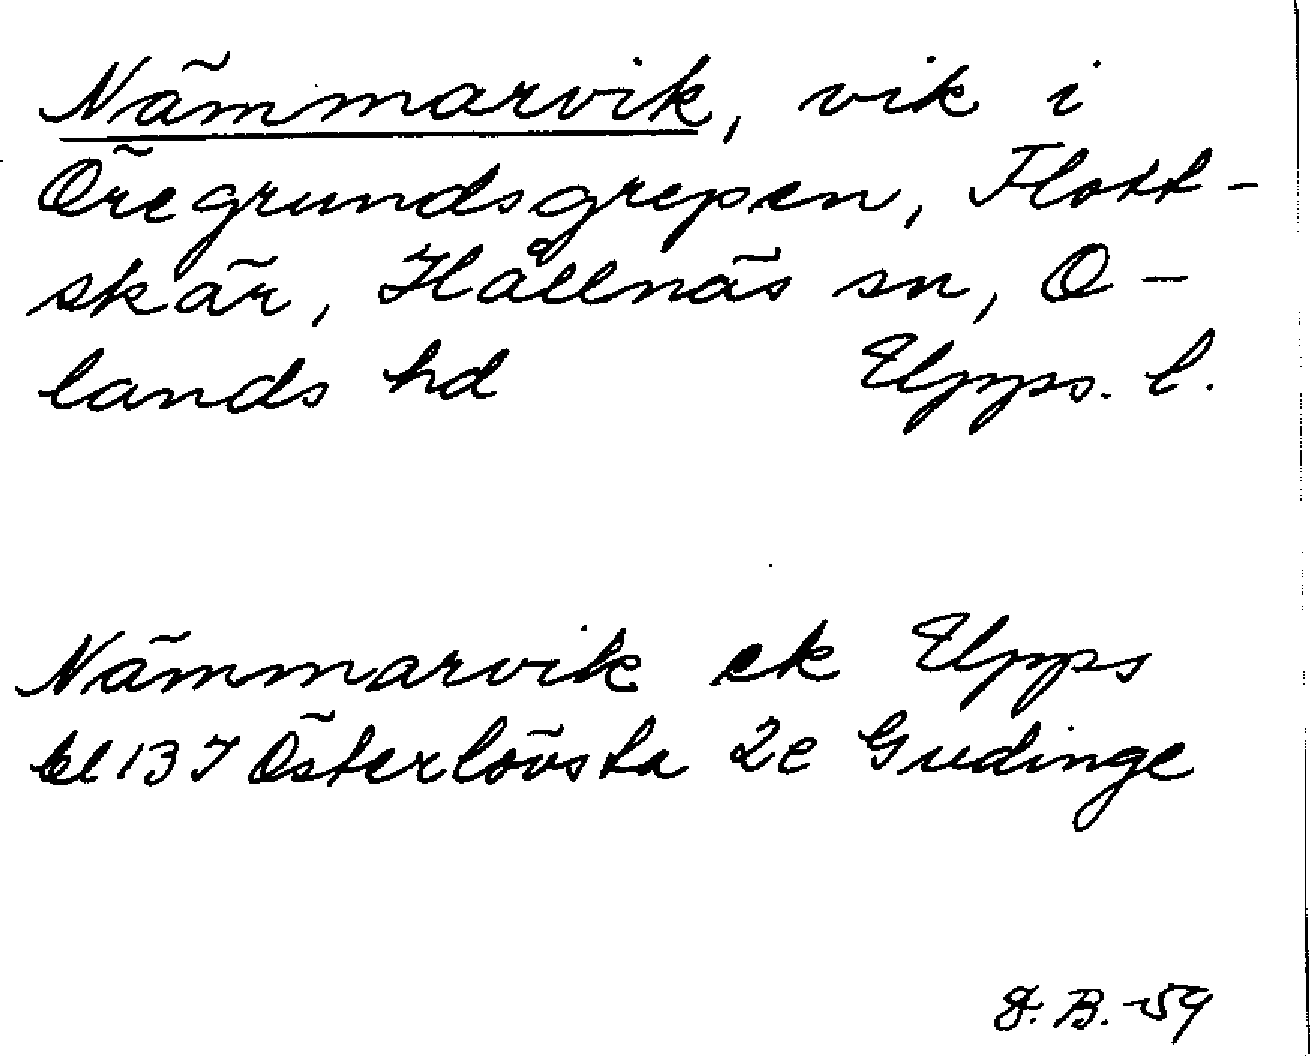 Nämmarvik, vik i
Öregrundsgrepen, Flott-
skär, Hållnäs sn, O-
lands hd Upps. l.
Nämmarvik ek Upps
bl 137 Österlövsta 2e Gudinge
B. -59